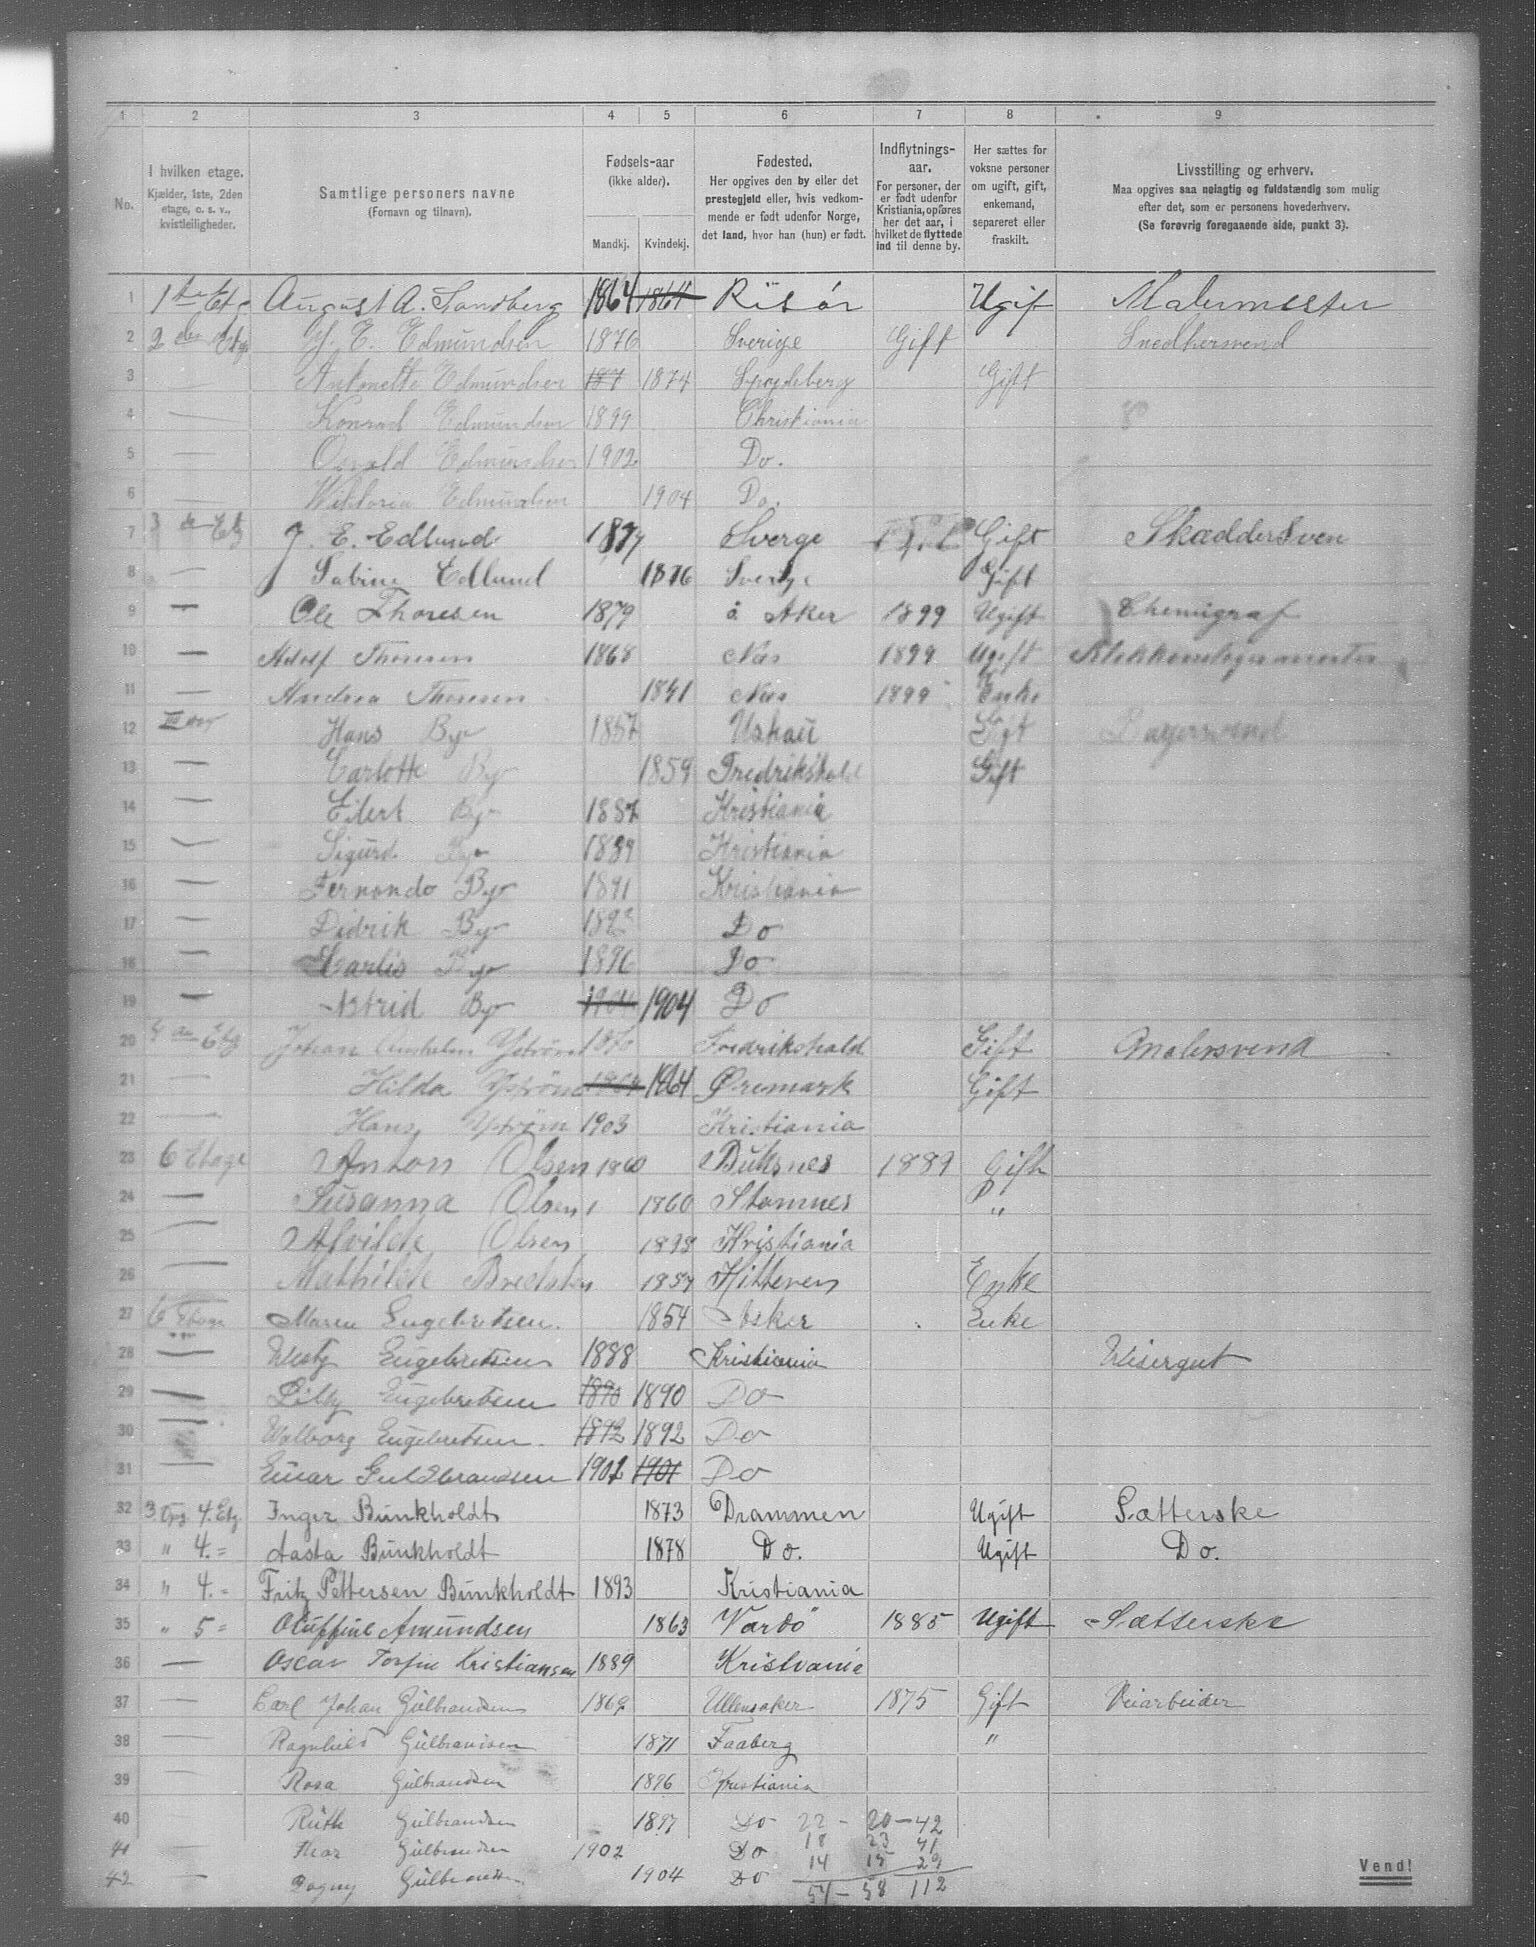 1 2 3 4 5 6 7 8 9
No.
I hvilken etage.
Kjælder, 1ste, 2den
etage, o. s. v.,
kvistleiligheder.
Samtlige personers navne
(Fornavn og tilnavn).
Fødsels-aar
(ikke alder).
Mandkj. Kvindekj.
Fødested.
Her opgives den by eller det
prestegjeld eller, hvis vedkom-
mende er født udenfor Norge,
det land, hvor han (hun) er født.
Indflytnings-
aar.
For personer, der
er født udenfor
Kristiania, opføres
her det aar, i
hvilket de flyttede
ind til denne by.
Her sættes for
voksne personer
om ugift, gift,
enkemand,
separeret eller
fraskilt.
Livsstilling og erhverv.
Maa opgives saa nøiagtig og fuldstændig som mulig
efter det, som er personens hovederhverv.
(Se forøvrig foregaaende side, punkt 3).
1 1ste Etg August A. Sandberg 1864 1864 Riisör Ugif Malermester
2 2den Etg E. Edmundsen 1876 Sverige Gift Snedkersvend
3 — Antonette Edmundsen 187 1874 Spydeberg Gift
4 — Konrad Edmundsen 1899 Christiania
5 — Osvald Edmundsen 1902 Do.
6 — Viktoria Edmundsen 1904 Do.
7 3de Etg J. E. Edlund 1877 Sverge Gift Skæddersven
8 — Sabine Edlund 1876 Sverige Gift
9 — Ole Thoresen 1879 Aker 1899 Ugift Chemigraf
10 — Adolf Thoresen 1868 Näs 1899 Ugift
11 — Andrea Thoresen 1841 Näs 1899 Enke
12 Hans By 1857 Gift Bagersvend
13 — Carlotte By 1859 Fredrikshald Gift
14 — Eilert By 1887 Kristiania
15 — Sigurd By 1889 Kristiania
16 — Fernando By 1891 Kristiania
17 — Didrik By Do
18 — Carlis By 1896 Do
19 — Astrid By 1904 1904 Do
20 Etg Johan Ystrøm Fredrikshald Gift Malersvend
21 — Hilda Ystrøm 1864 1864 Øremark Gift
22 — Hans Ystrøm 1903 Kristiania
23 6 Etage Anton Olsen 1860 Buksnes 1889 Gift
24 — Susanna Olsen 1860 Stamnes "
25 — Alvilde Olsen 1898 Kristiania
26 — Mathilde 1857 Hitteren Enke
27 6 Etage Maren Engebretsen. 1854 Asker Enke
28 — Engebretsen 1888 Kristiania Visergut
29 — Lilly Engebretsen 1890 1890 Do
30 — Valborg Engebretsen. 1892 1892 Do
31 — Einar Guldbrandsen 1901 1901 Do
32 3 Opg 4. Etg Inger Bunkholdt 1873 Drammen Ugift Sætterske
33 " 4. = Aasta Bunkholdt 1878 Do. Ugift Do.
34 " 4. = Fritz Pettersen Bunkholdt 1893 Kristiania
35 " 5 = Oluffine Amundsen 1863 Vardö 1885 Ugift Sætterske
36 — Oscar Torfin Kristiansen 1889 Kristiania
37 — Carl Johan Gulbrandsen 1869 Ullensaker 1875 Gift Veiarbeider
38 — Ragnhild Gulbrandsen 1871 Faaberg "
39 — Rosa Gulbrandsen 1896 Kristiania
40 Ruth Gulbrandsen 1897 Do 22 — 20 — 42
41 Thor Gulbrandsen 1902 Do 18 23 41
42 — Dagny Gulbrandsen 1904 Do 14 15 29
54 — 58 112
Vend!